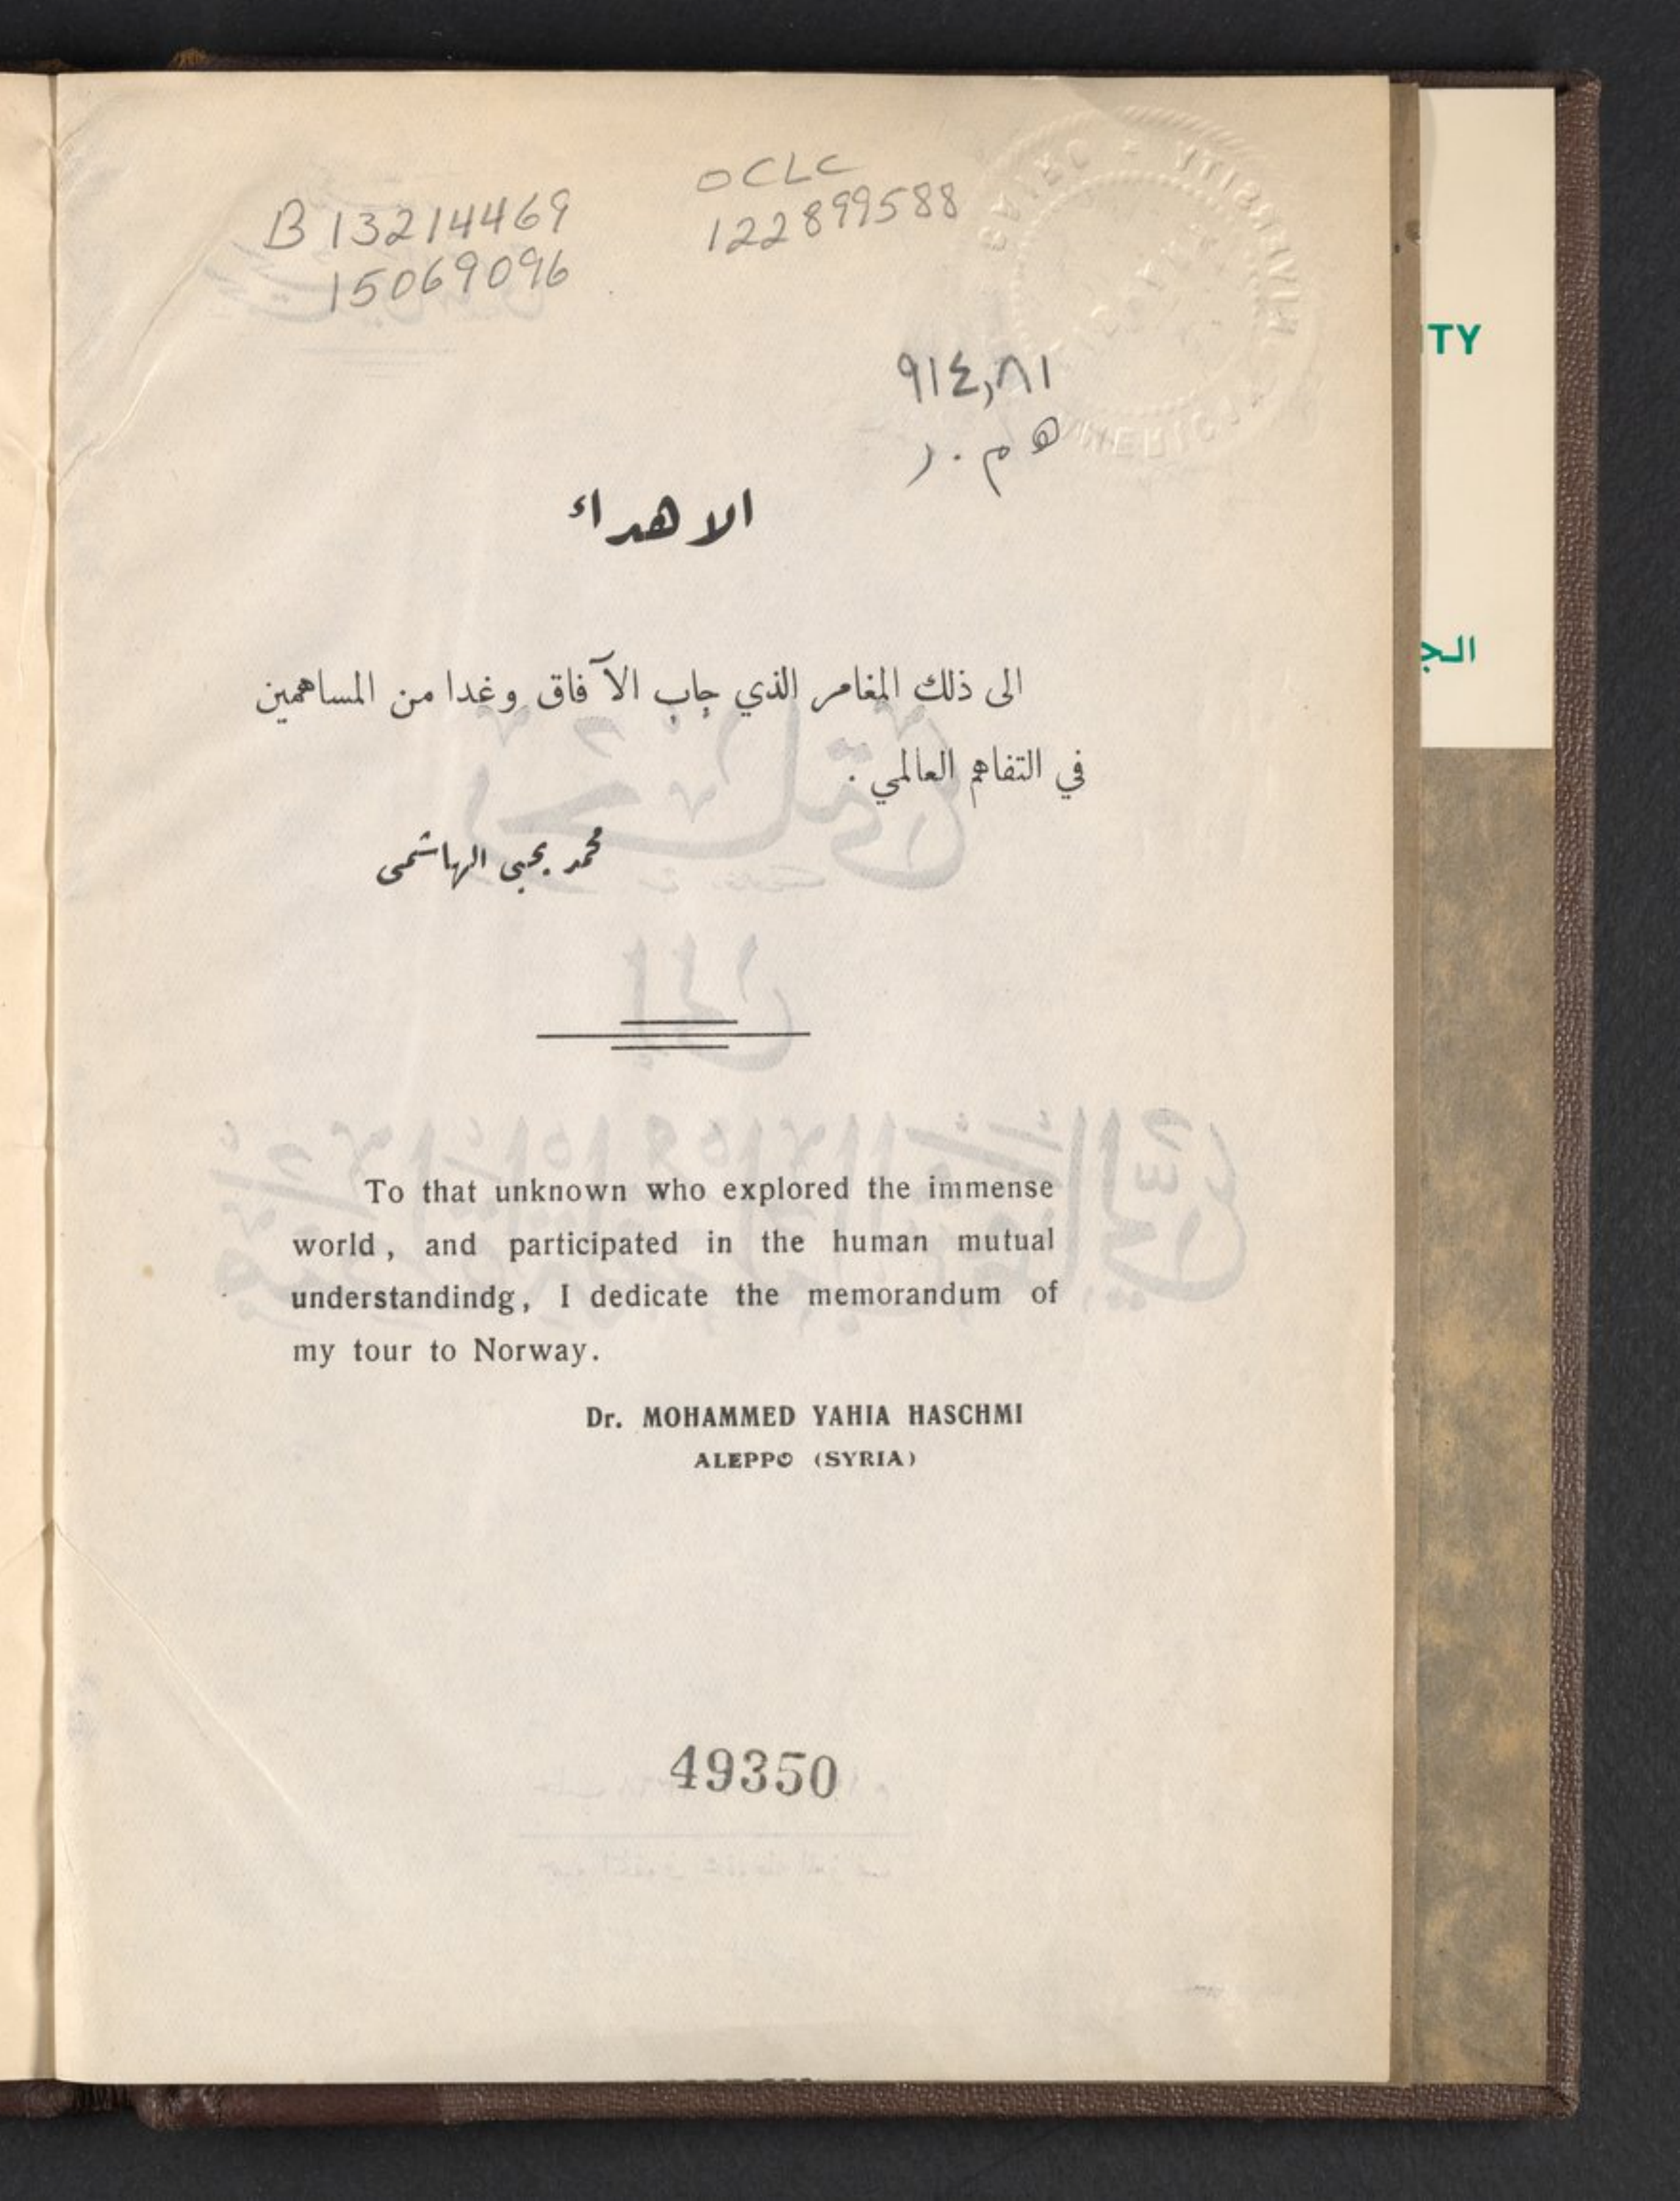 B 13214469
15069096
OCLC
122899588
٩١٤,٨١
ه م . ر
الاهداء
الى ذلك المغامر الذي جاب الآفاق وغدا من المساهمين
في التفاهم العالمي .
محمد يحيى الهاشمى
To that unknown who explored the immense
world, and participated in the human mutual
understandindg, I dedicate the memorandum of
my tour to Norway.
Dr. MOHAMMED YAHIA HASCHMI
ALEPPO (SYRIA)
49350
TY